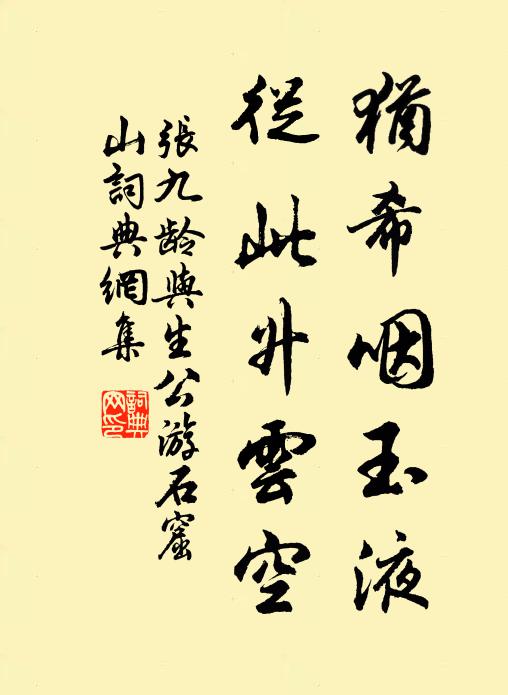 猶希咽玉液
從此升雲空
張九龄與生公游石窟
山詞典網集
詞典
网印